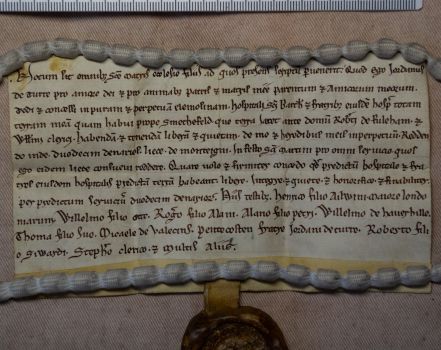 Notum sit omnibus sce matris ecclesie filiis ad quos presens scriptu puenerit. Quod ego Jordanus
de turre pro amore dei & pro animabus patris & matris mee parentum & amicorum meorum
dedi & concessi in puram & perpetuam elemosinam. hospitali sci Barth & fratribus eiusde hosp totam
terram meam quam habui prope smethefeld que terra iacet ante domu Roberti de
Willmi clerici. habendam & tenendam liberam & quietam. de me & heredibus meis inperpetuum. Redden
do inde duodecim denarios In festo sci martini pro omni seruicio quos
ego eidem consueui reddere. Quare uolo & firmiter concedo qd predictum hospitale & fra
tres eiusdem hospitalis predictam terram habeant libere. integre & quiete. & honorifice. & finabiliter.
per predictum seruicium duodecim denarios. His testibus. henrico filio Ailwini maiore londo
niarum. Willelmo filio Rogero filio Alani. Alano filio petri. Willelmo de hauerhille.
Thoma filio suo. Micaele de Valecinis. pentecosten fratre Jordani de turre. Roberto fili
o siwardi. Stepho clerico. & multis aliis.